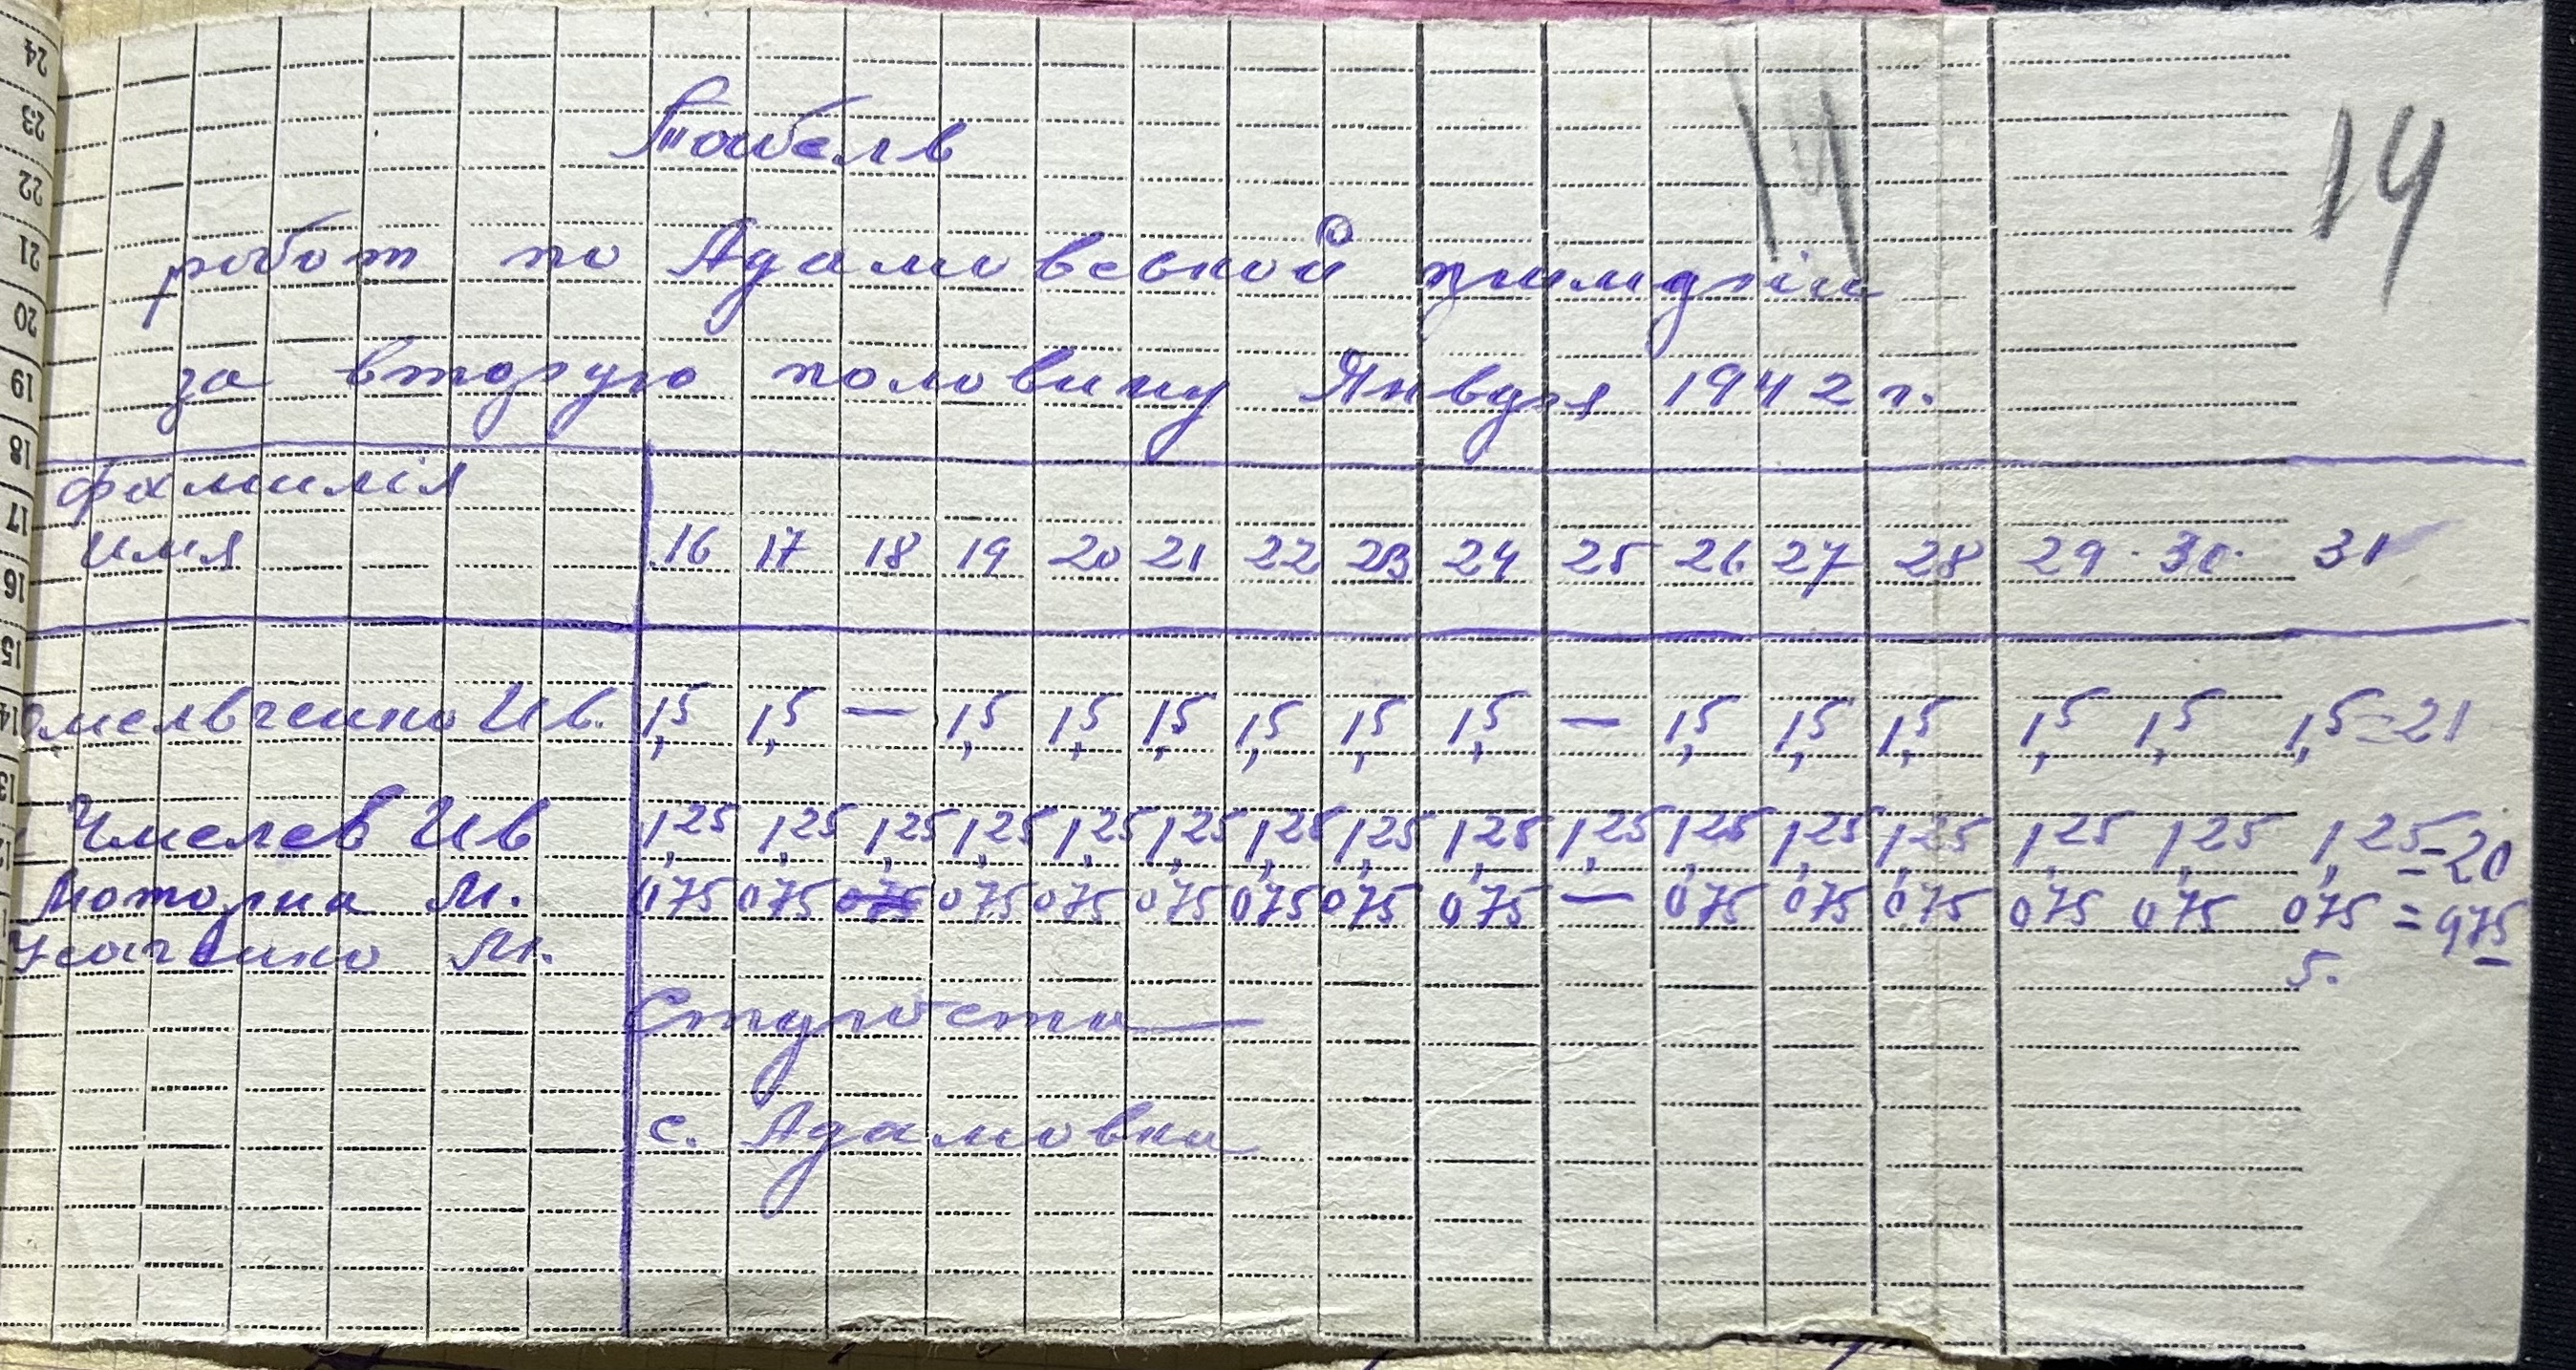 14
Табель
робот по Адамовской
за вторую половину Января 1942 г.
Фамилія
имя 16 17 18 19 20 21 22 23 24 25 26 27 28 29 · 30 · 31
Омельченко Ив. 1,5 1,5 — 1,5 1,5 1,5 1,5 1,5 1,5 — 1,5 1,5 1,5 1,5 1,5 1,5=21
Чмелев Ив 1,25 1,25 1,25 1,25 1,25 1,25 1,25 1,25 1,25 1,25 1,25 1,25 1,25 1,25 1,25 1,25=20
Моторна М. 075 075 075 075 075 075 075 075 075 — 075 075 075 075 075 075 = 975
Усаченко М. 5.
Староста
с. Адамовки
24
23
22
21
20
19
18
17
16
15
14
13